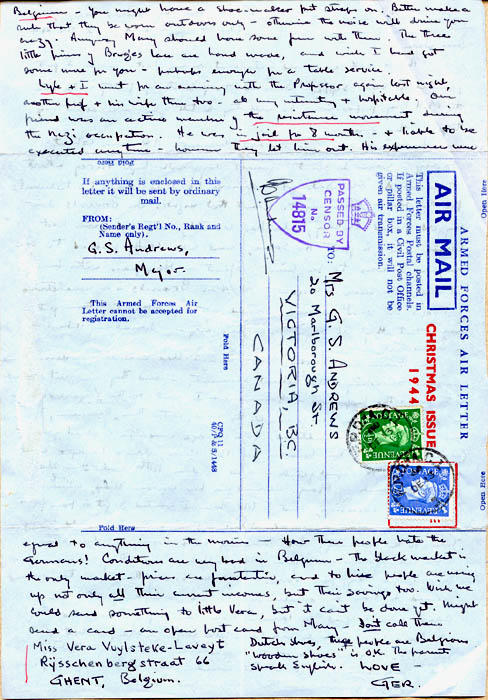 Belgium - you might have a shoe-maker put straps on. Better make a
rule that they be worn outdoors only - otherwise the noise will drive you
crazy. Anyway Mary should have some fun with them. The three
little pieces of Bruges lace are hand made, and wish I had got
some more for you - perhaps enough for a table service.
Lyle & I went for an evening with the Professor again last night
another prof & his wife there too - all very interesting & hospitable. Our
friend was an active member of the resistance movement during
the Nazi occupation. He was in jail for 8 months - & liable to be
executed anytime - however they let him out. His experiences were
Fold Here
If anything is enclosed in this
letter it will be sent by ordinary
mail.
FROM:
(Sender's Regt'l No., Rank and
Name only).
G.S. Andrews,
Major.
This Armed Forces Air
Letter cannot be accepted for
registration.
Open Here
ARMED FORCES AIR LETTER
AIR MAIL
This letter must be posted in
Armed Forces Postal channels.
If posted in a Civil Post Office
or pillar box, it will not be
given air transmission.
CHRISTMAS ISSUE
1944
PASSED BY
CENSOR
No.
14815
TO:
Mrs G. S. ANDREWS
20 Marlborough St
VICTORIA, BC.
CANADA
POSTAGE
REVENUE
POSTAGE
REVENUE
Fold Here
CPQ 11
40/P & S/1448
Open Here
Fold Here
equal to anything in the movies - How these people hate the
Germans! Conditions are very bad in Belgium - The black market is
the only market - prices are fantastic, and to live people are using
up not only all their current incomes, but their savings too. Wish we
could send something to little Vera, but it can't be done yet. Might
send a card - an open post card from Mary - Don't call them
Dutch shoes, these people are Belgians
Miss Vera Vuylsteke-Laveyt
"wooden shoes" is OK. The parents
Rijsschenbergstraat 66
speak English. LOVE -
GHENT, Belgium.
GER.